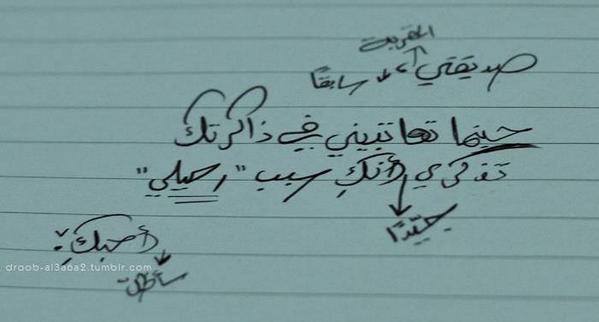 المقربة
صديقتي سابقًا
حينما تعاتبيني في ذاكرتك
تذكري أنكِ سبب "رحيلي"
جيّدًا
أحبكِ
سأظل
droob-al3aba2.tumblr.com